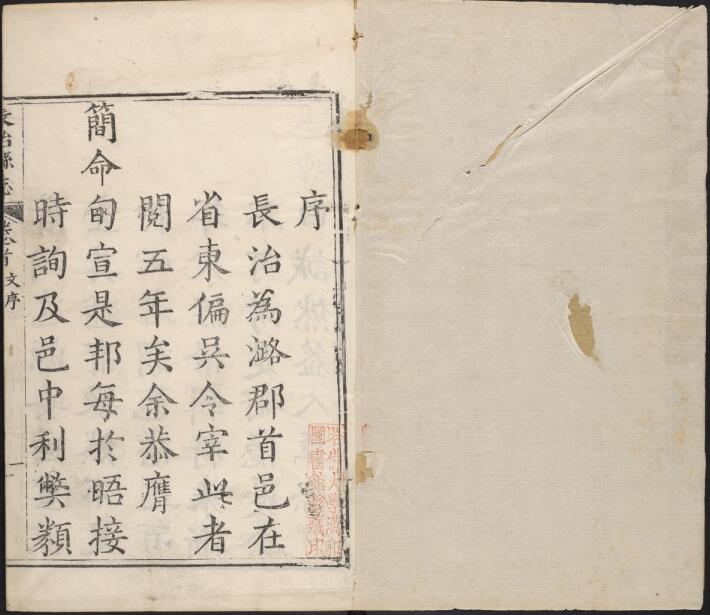 序
長治為潞郡首邑在
省東偏吳令宰此者
閱五年矣余恭膺
簡命旬宣是邦每於晤接
時詢及邑中利獘類
長治縣志
卷首 文序
一
哈佛大學漢和
圖書館藏印